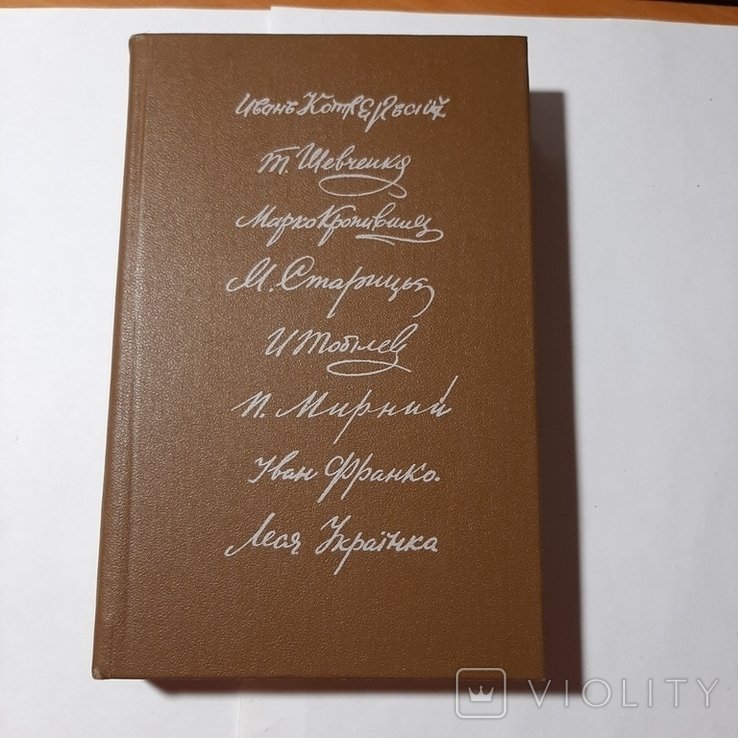 Иванъ Котляревскій
Т. Шевченко
Марко Кропивниц
М. Старицьк
И Тобілев
П. Мирний
Іван Франко.
Леся Українка
VIOLITY